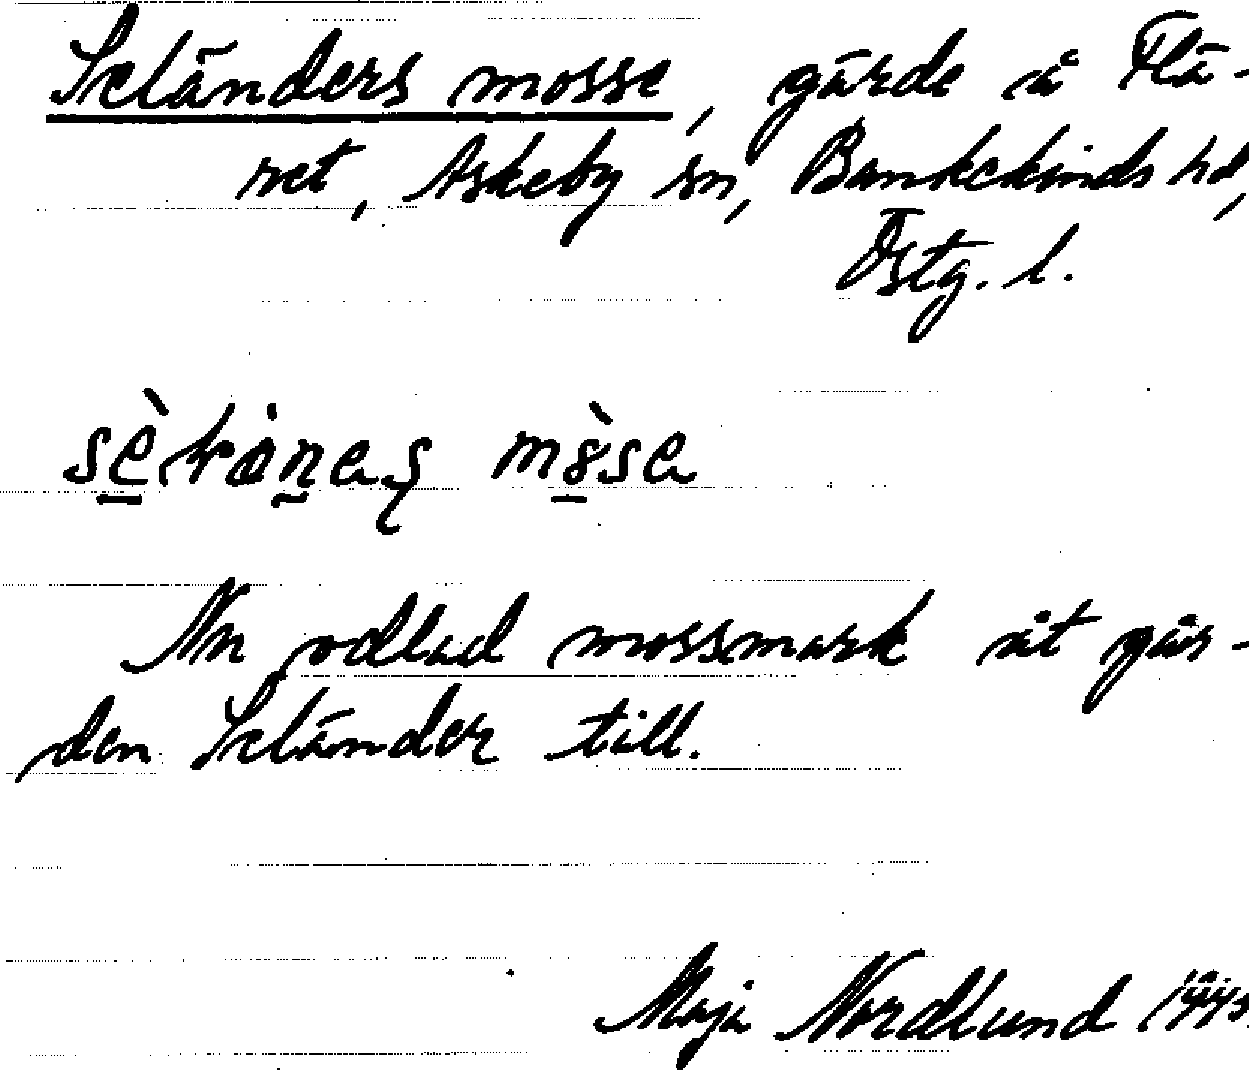 Seländers mosse, gärde å Flä-
ret, Askeby sn, Bankekinds hd,
Östg. l.
mòsa
Nu odlad mossmark åt går-
den Seländer till.
Maja Nordlund